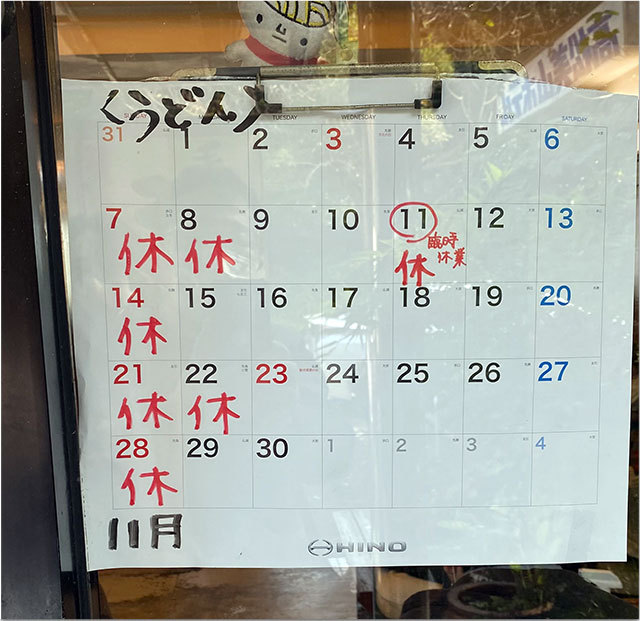 〈うどん〉
TUESDAY WEDNESDAY THURSDAY FRIDAY SATURDAY
31 1 2 3 4 5 6
7 8 9 10 11 12 13
休 休 臨時
休 休業
14 15 16 17 18 19 20
休
21 22 23 24 25 26 27
休 休
28 29 30 1 2 3 4
休
11月
HINO